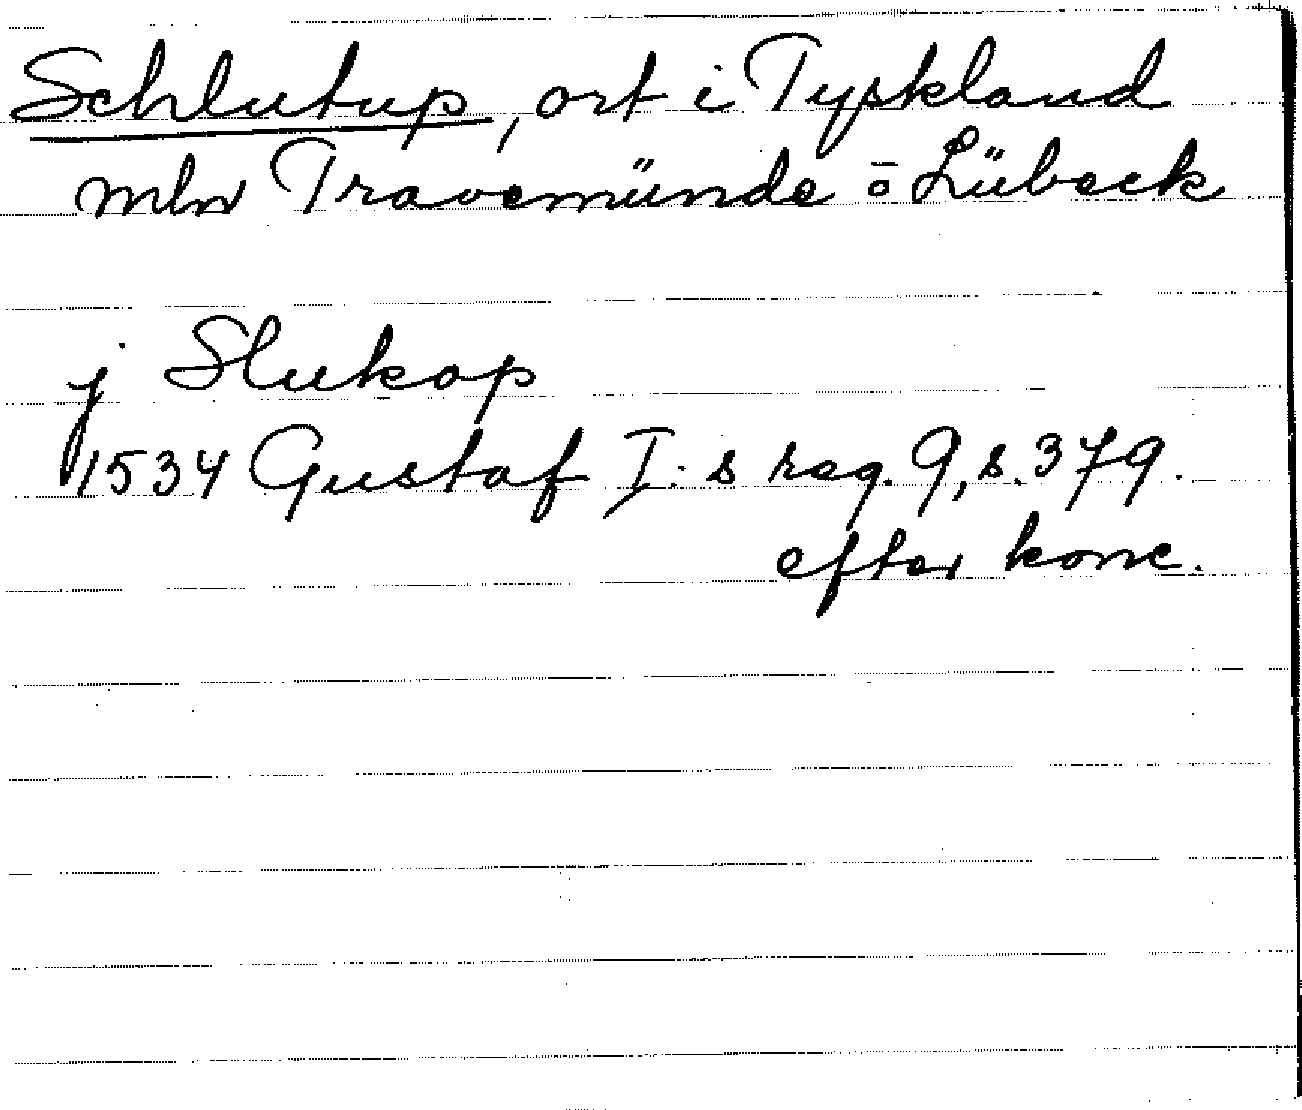 Schlutup, ort i Tyskland
mln Travemünde o Lübeck
j Slukop
1534 Gustaf I:s reg. 9, s. 379.
efter konc.